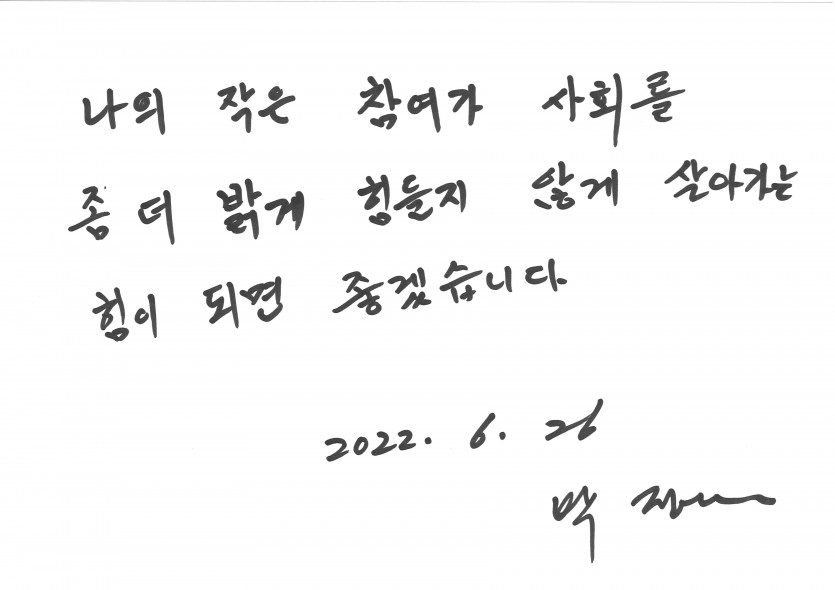 나의 작은 참여가 사회를
좀 더 밝게 힘들지 않게 살아가는
힘이 되면 좋겠습니다.
2022. 6. 26
박